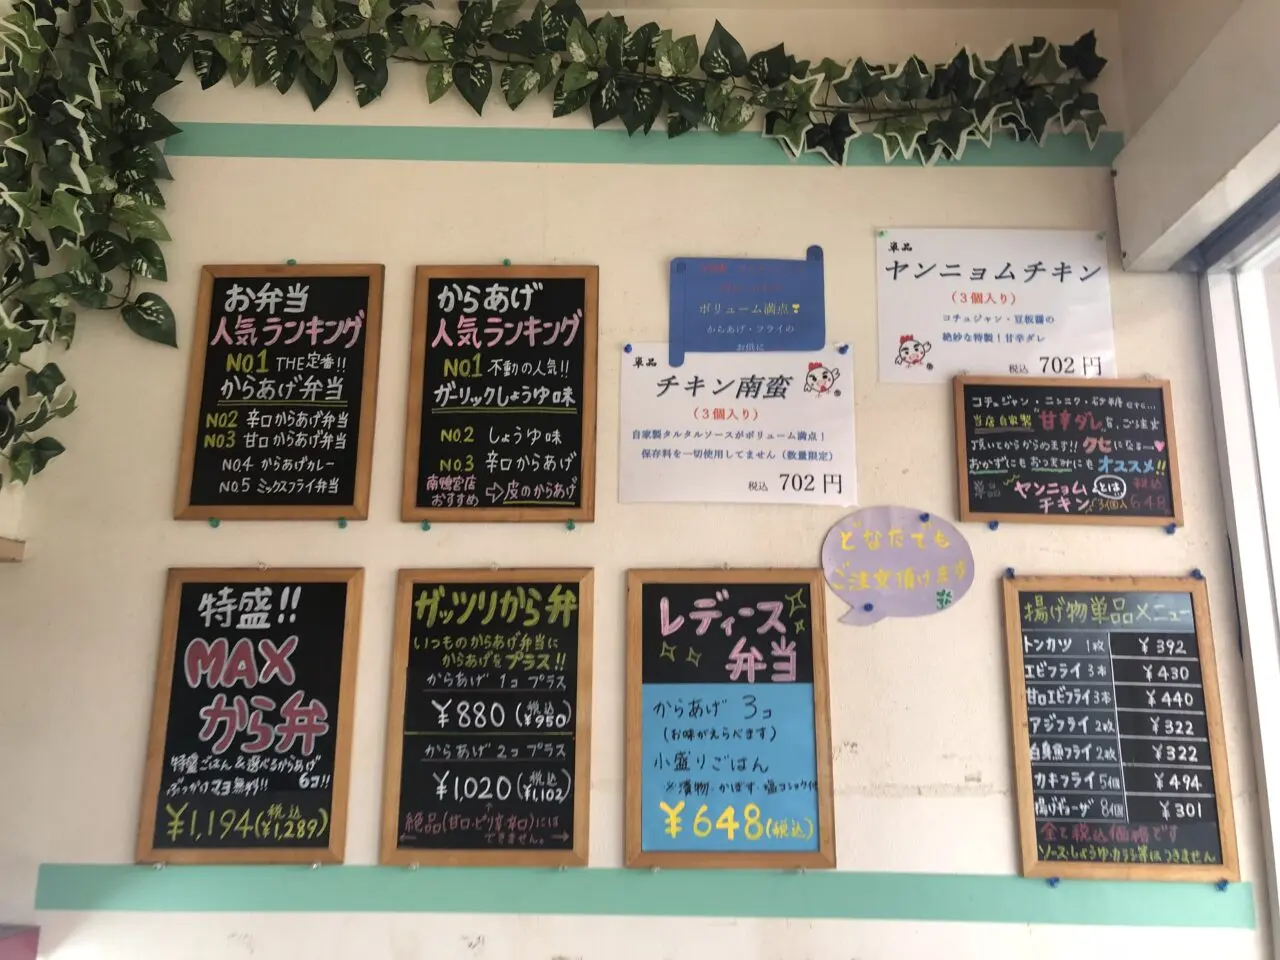 お弁当
人気ランキング
No.1 THE定番!!
からあげ弁当
No.2 辛口からあげ弁当
No.3 甘口からあげ弁当
No.4 からあげカレー
No.5 ミックスフライ弁当
からあげ
人気ランキング
No.1 不動の人気!!
ガーリックしょうゆ味
No.2 しょうゆ味
No.3 辛口からあげ
南鴨宮店
おすすめ ⇨皮のからあげ
ボリューム満点
からあげ・フライの
お供に
単品
チキン南蛮
(3個入り)
自家製タルタルソースがボリューム満点!
保存料を一切使用してません(数量限定)
税込 702円
単品
ヤンニョムチキン
(3個入り)
コチュジャン・豆板醤の
絶妙な特製!甘辛ダレ
税込 702円
コチュジャン・ニンニク・
当店自家製"甘辛ダレ"を、ご注文
頂いてからからめます!! クセになる〜♥
おかずにもおつまみにもオススメ!!
ヤンニョム とは!! 税込
チキン 3個入 648
どなたでも
ご注文頂けます
特盛!!
MAX
から弁
特盛ごはん&選べるからあげ
6コ!!
ぶっかけマヨ無料!!
¥1,194(税込¥1,289)
ガッツリから弁
いつものからあげ弁当に
からあげをプラス!!
からあげ 1コ プラス
¥880(税込¥950)
からあげ 2コ プラス
¥1,020(税込¥1,102)
絶品(甘口・ピリ辛・辛口)には
できません。
レディース
弁当
からあげ 3コ
(お味がえらべます)
小盛りごはん
※漬物・かぼす・塩コショウ付
¥648(税込)
揚げ物単品メニュー
トンカツ 1枚 ¥392
エビフライ 3本 ¥430
甘口エビフライ 3本 ¥440
アジフライ 2枚 ¥322
白身魚フライ 2枚 ¥322
カキフライ 5個 ¥494
揚げギョーザ 8個 ¥301
全て税込価格です
ソース・しょうゆ・カラシ等はつきません